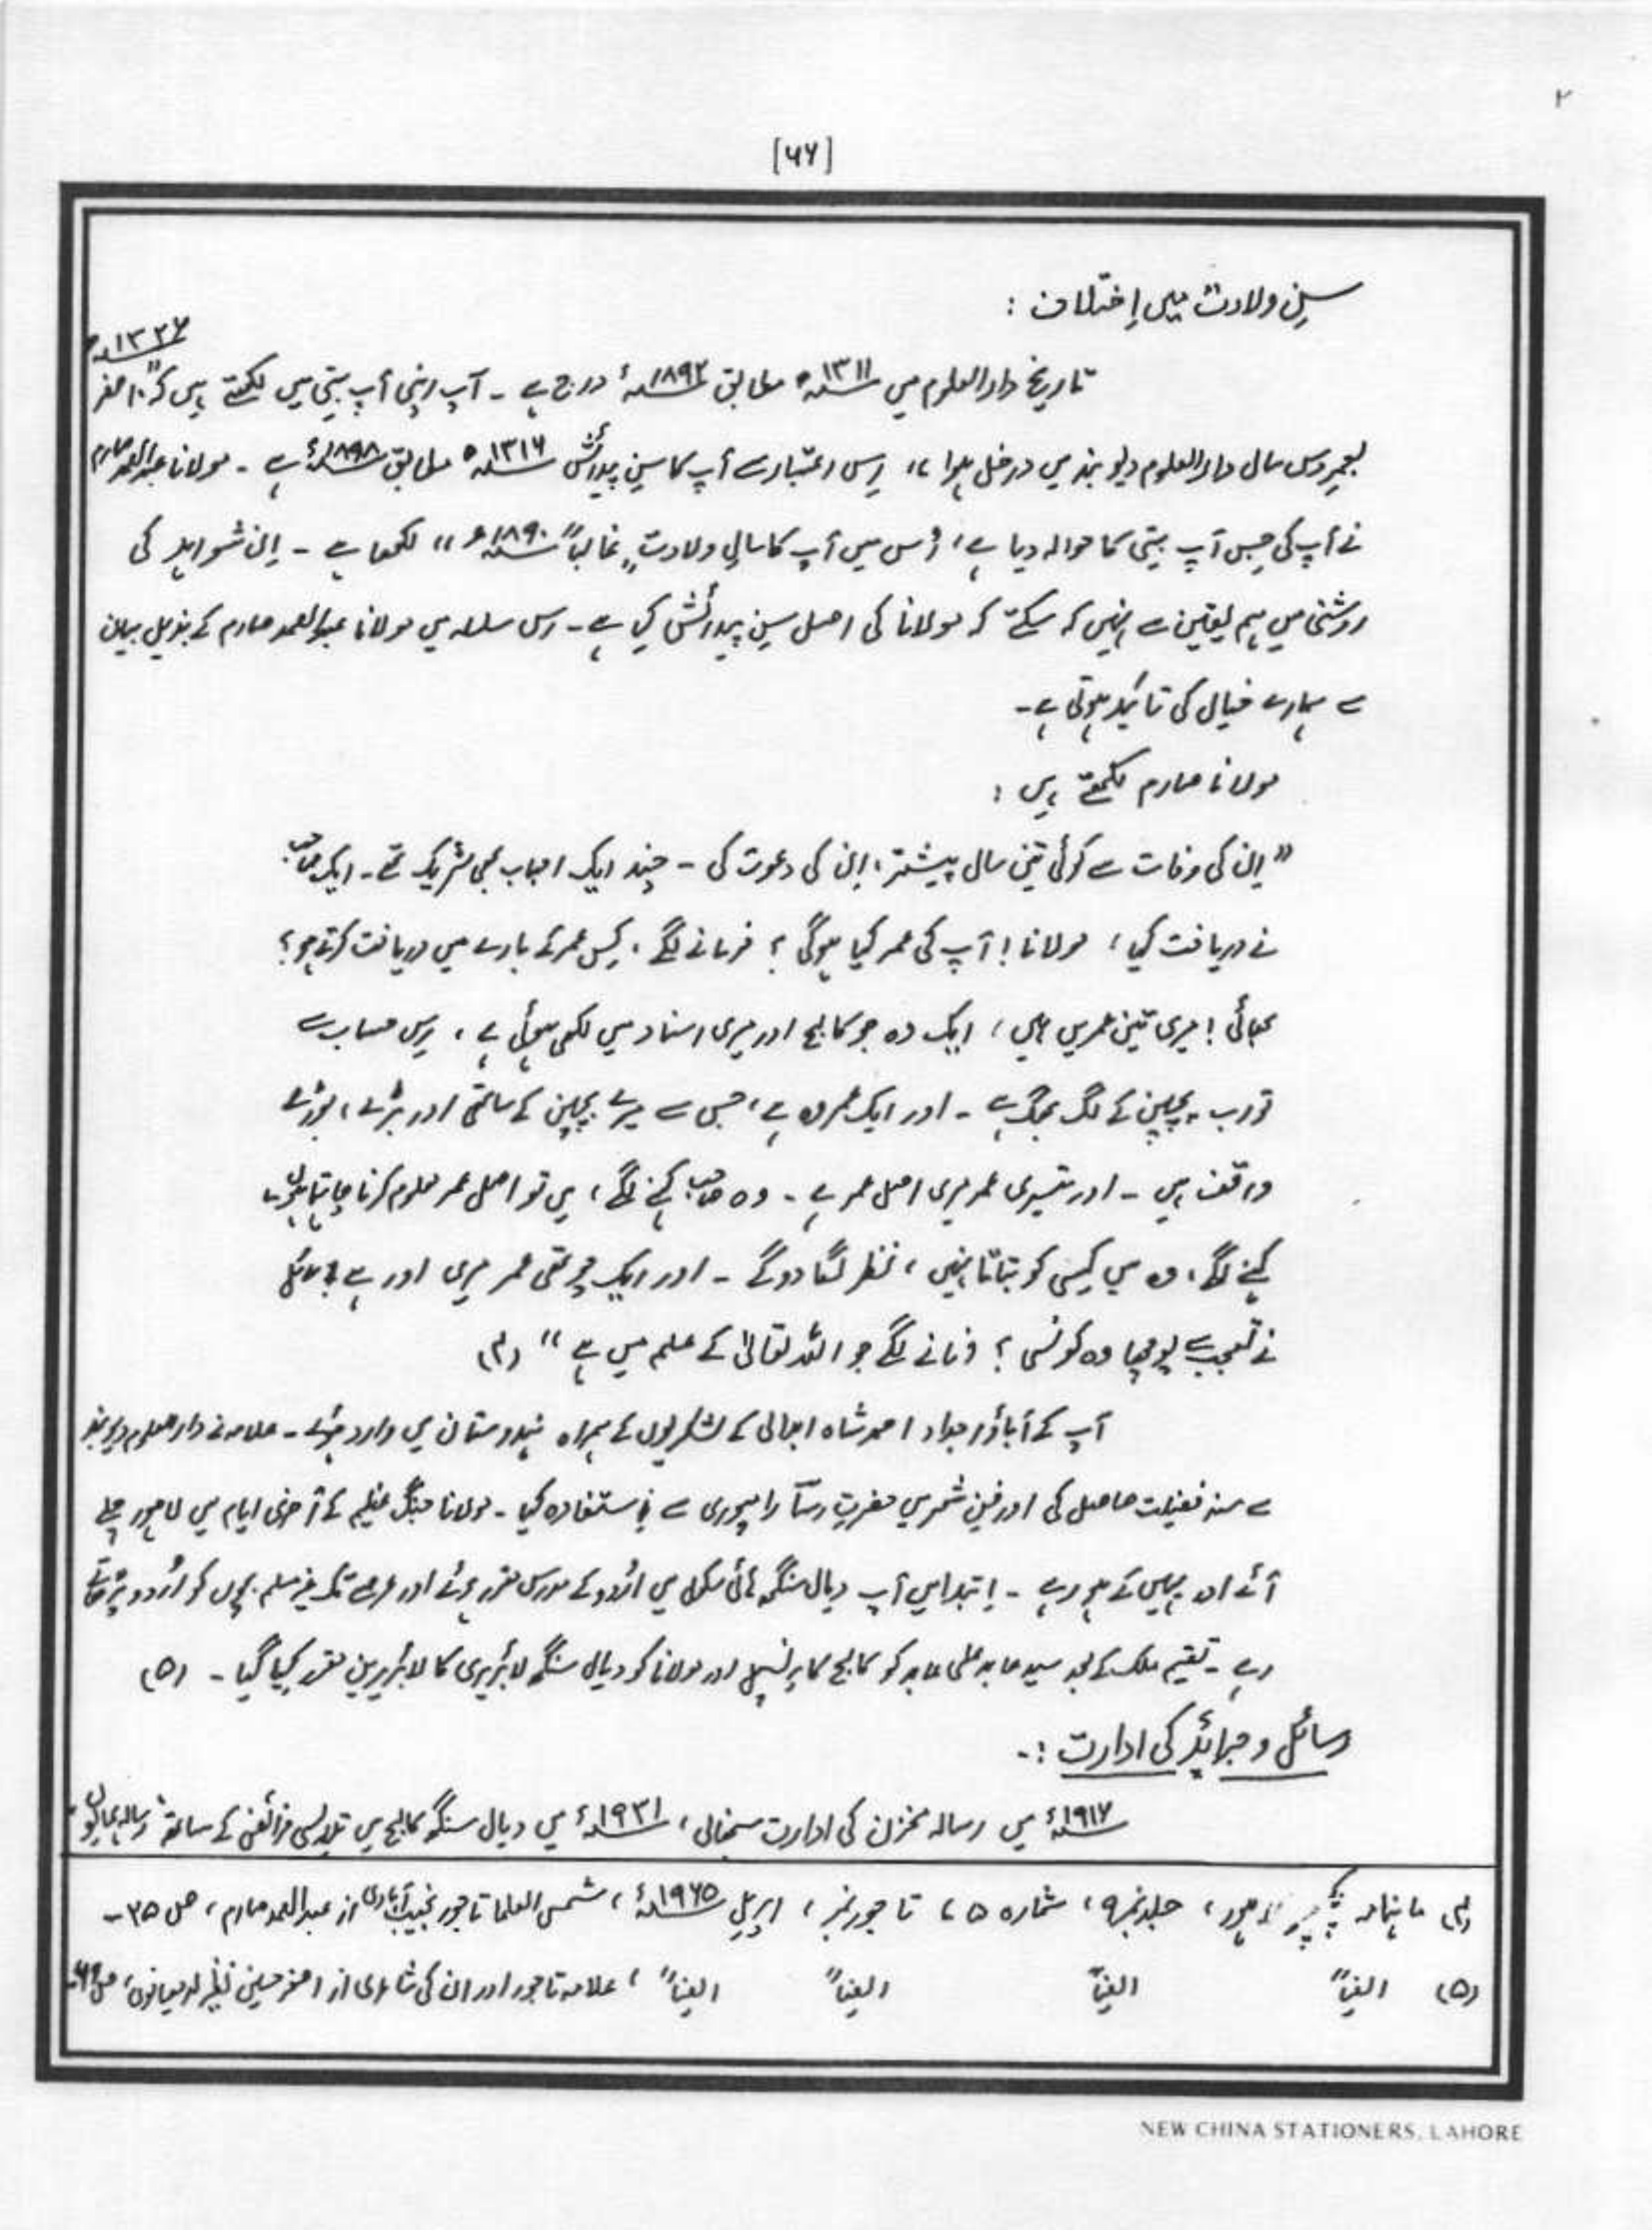 ۲
[۶۶]
سِنِ ولادت میں اِختلاف :
۱۳۲۶ھ
تاریخ دارالعلوم میں ۱۳۱۱ھ مطابق ۱۸۹۳ء درج ہے ۔ آپ اپنی آپ بیتی میں لکھتے ہیں کہ "۱۰ صفر
بعمر دس سال دارالعلوم دیوبند میں داخل ہوا" اِس اعتبار سے آپ کا سِن پیدائش ۱۳۱۶ھ مطابق ۱۸۹۸ء ہے ۔ مولانا عبدالصمد صارم
نے آپ کی جس آپ بیتی کا حوالہ دیا ہے، اُس میں آپ کا سالِ ولادت "غالباً ۱۸۹۰ء" لکھا ہے ۔ اِن شواہد کی
روشنی میں ہم یقین سے نہیں کہہ سکتے کہ مولانا کی اصل سِن پیدائش کیا ہے ۔ اس سلسلہ میں مولانا عبدالصمد صارم کے بیان
سے ہمارے خیال کی تائید ہوتی ہے ۔
مولانا صارم لکھتے ہیں :
"اِن کی وفات سے کوئی تین سال پیشتر، اِن کی دعوت کی ۔ چند ایک احباب بھی شریک تھے ۔ ایک صاحب
نے دریافت کیا، مولانا! آپ کی عمر کیا ہوگی ؟ فرمانے لگے، کِس عمر کے بارے میں دریافت کرتے ہو؟
بھائی! میری تین عمریں ہیں، ایک وہ جو کالج اور میری اسناد میں لکھی ہوئی ہے، اِس حساب سے
تو اب پچپن کے لگ بھگ ہے ۔ اور ایک عمر وہ ہے، جس سے میرے بچپن کے ساتھی اور بڑے، بوڑھے
واقف ہیں ۔ اور تیسری عمر میری اصل عمر ہے ۔ وہ صاحب کہنے لگے، میں تو اصل عمر معلوم کرنا چاہتا ہوں ۔
کہنے لگے، وہ میں کِسی کو بتاتا نہیں، نظر لگا دو گے ۔ اور ایک چوتھی عمر میری اور ہے، سائل
نے تعجب سے پوچھا وہ کونسی ؟ فرمانے لگے جو اللہ تعالیٰ کے علم میں ہے" (۴)
آپ کے آباؤاجداد احمد شاہ ابدالی کے لشکریوں کے ہمراہ ہندوستان میں وارد ہوئے ۔ علامہ نے دارالعلوم دیوبند
سے سندِ فضیلت حاصل کی اور فنِ شعر میں حضرت رسآ رامپوری سے اِستفادہ کیا ۔ مولانا جنگِ عظیم کے آخری ایام میں لاہور چلے
آئے اور یہیں کے ہو رہے ۔ اِبتدا میں آپ دیال سنگھ ہائی سکول میں اُردو کے مدرس مقرر ہوئے اور عرصے تک غیر مسلم بچوں کو اُردو پڑھاتے
رہے ۔ تقسیم ملک کے بعد سید عابد علی عابد کو کالج کا پرنسپل اور مولانا کو دیال سنگھ لائبریری کا لائبریرین مقرر کیا گیا ۔ (۵)
رسائل و جرائد کی ادارت :۔
۱۹۱۷ء میں رسالہ مخزن کی ادارت سنبھالی، ۱۹۲۱ء میں دیال سنگھ کالج میں تدریسی فرائض کے ساتھ رسالہ ہمایوں
(۴) ماہنامہ لاہور، جلد نمبر ۹، شمارہ ۵، تاجور نمبر، اپریل ۱۹۶۵ء، شمس العلما تاجور نجیب آبادی از عبدالصمد صارم، ص ۳۵ ۔
(۵) ایضاً ایضاً ایضاً ایضاً، علامہ تاجور اور ان کی شاعری از اصغر حسین نظیر لودھیانوی، ص ۶۹
NEW CHINA STATIONERS, LAHORE